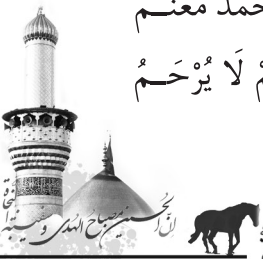 حمد معنـــم
لَا يُرْحَـــمُ
إن الحسين مصباح الهدى وسفينة النجاة